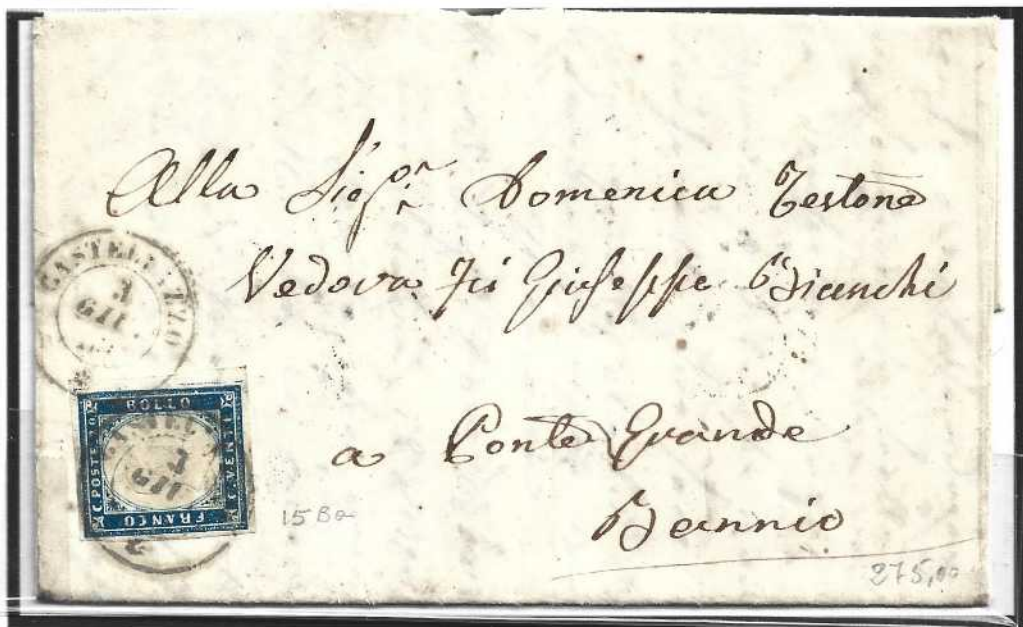 Alla Sigr. Domenica Testone
Vedova fu Giuseppe Bianchi
a Ponte Grande
Bannio
CASTELLAZZO
GIU
BOLLO
C. POSTE 20
C. VENTI
FRANCO
GIU
15 Ba
275,00